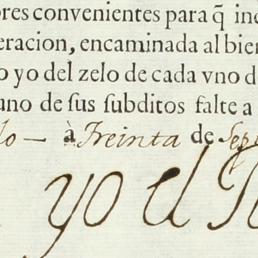 ores convenientes para q̃ ine
eracion, encaminada al bien
o yo del zelo de cada vno d
uno de sus subditos falte a
lo — à Treinta de Sept
yo el R